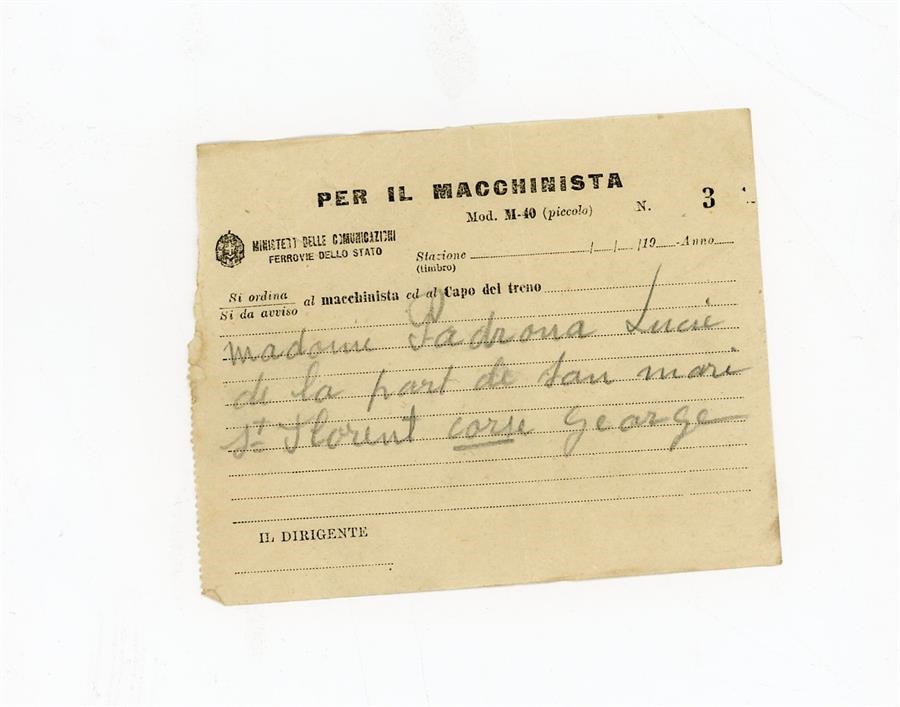 PER IL MACCHINISTA
Mod. M-40 (piccolo) N. 3
MINISTERO DELLE COMUNICAZIONI
FERROVIE DELLO STATO
Stazione / / /19 Anno
(timbro)
Si ordina
Si da avviso al macchinista ed al Capo del treno
madame Padrona Lucie
de la part de san mari
St Florent corse George
IL DIRIGENTE